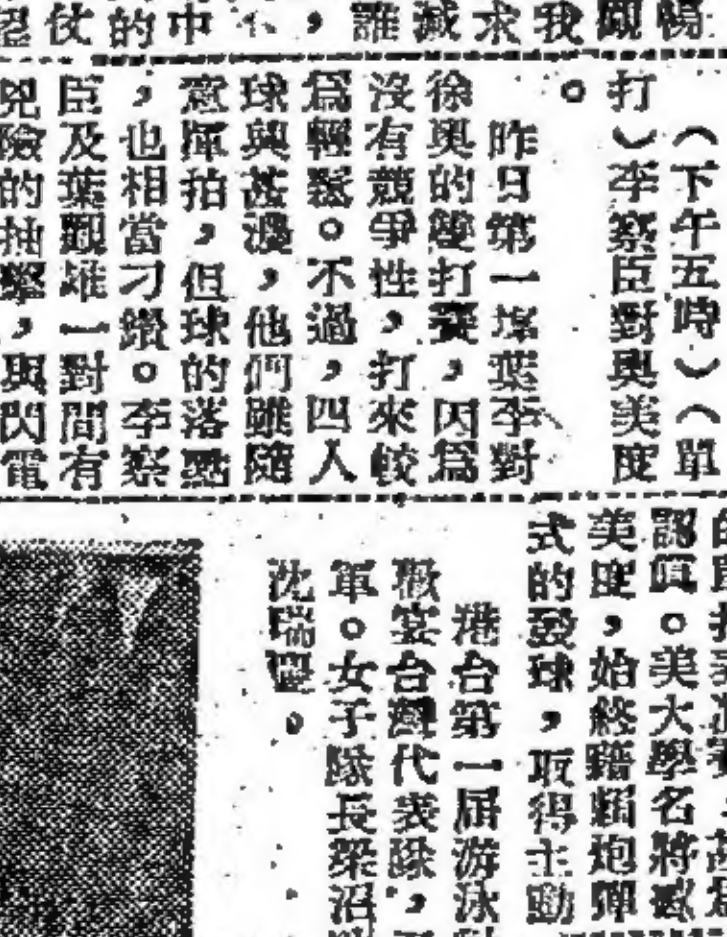 我
求
藏
誰
，
中
的
仗
（下午五時）（單
打）李察臣對奧美度
。
昨日第一場葉李對
徐奧的雙打賽，因爲
沒有競爭性，打來較
爲輕鬆。不過，四人
球興甚濃，他們雖隨
意揮拍，但球的落點
，也相當刁鑽。李察
臣及葉觀雄一對間有
兇險的抽擊，與閃電
認眞。美大學名將奧
美度，始終藉賴炮彈
式的發球，取得主動
港台第一屆游泳
歡宴台灣代表隊，
軍。女子隊長梁沼
沈瑞